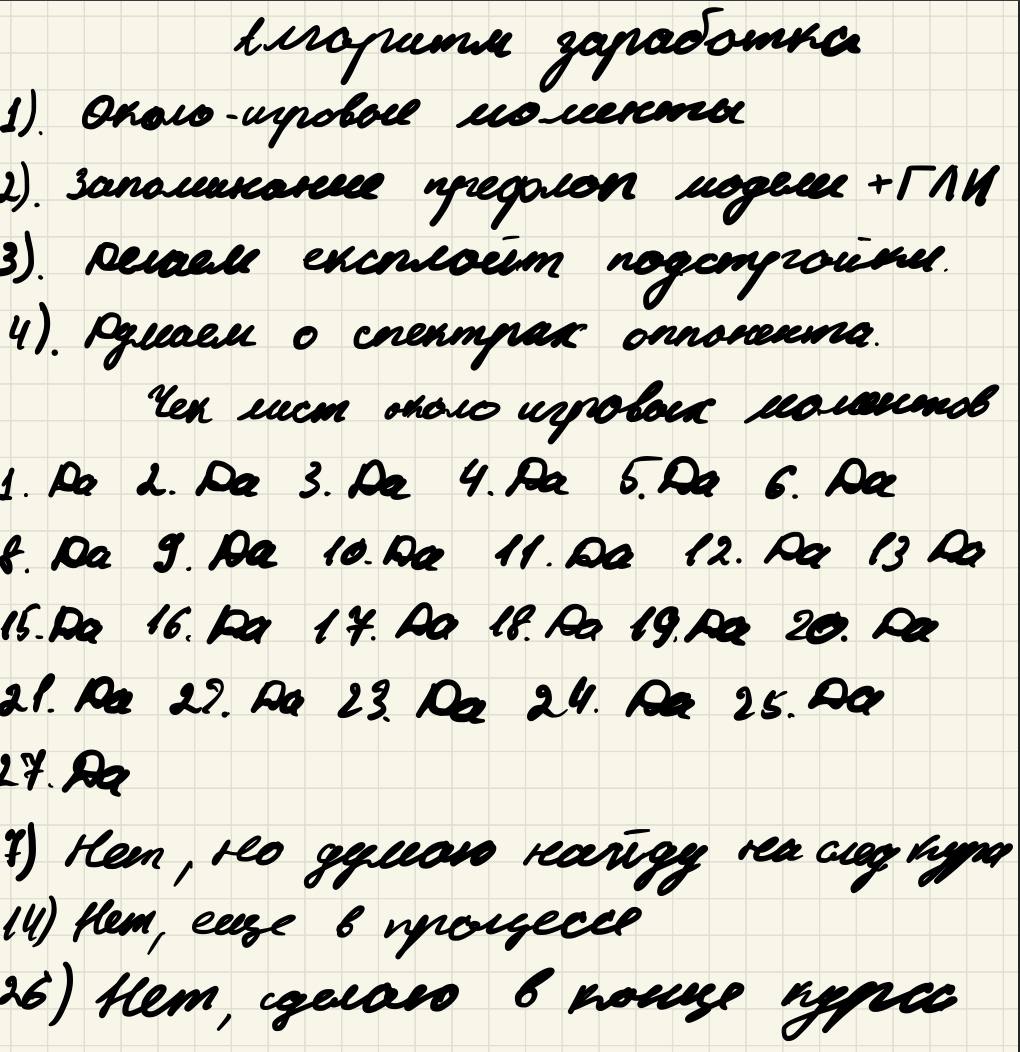 Алгоритм заработка
1). Около-игровые моменты
2). Запоминание префлоп модели + ГЛИ
3). Делаем експлойт подстройки.
4). Думаем о спектрах оппонента.
Чек лист около игровых моментов
1. Да 2. Да 3. Да 4. Да 5. Да 6. Да
8. Да 9. Да 10. Да 11. Да 12. Да 13 Да
15. Да 16. Да 17. Да 18. Да 19. Да 20. Да
21. Да 22. Да 23. Да 24. Да 25. Да
27. Да
7) Нет, но думаю найду на след
14) Нет, еще в процессе
26) Нет, сделаю в конце курса